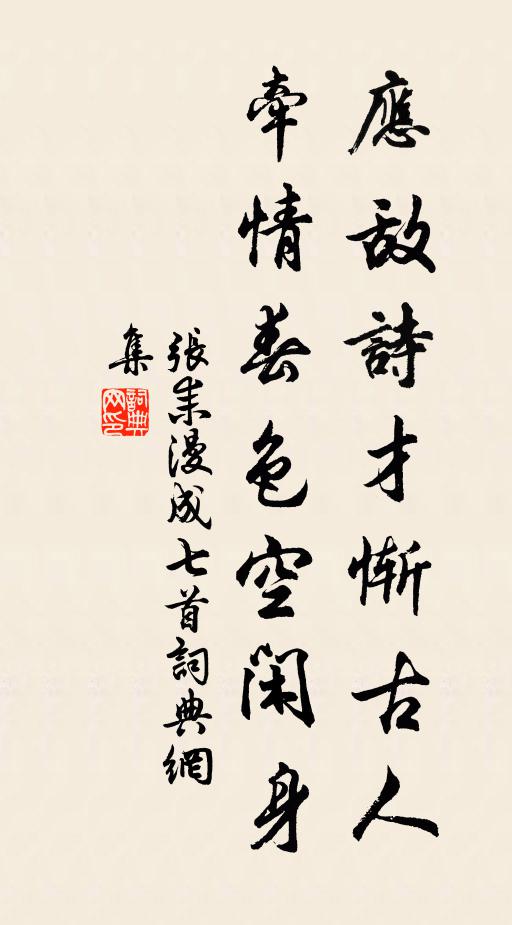 應敌詩才慚古人
牽情春色空閑身
張耒漫成七首詞典網
集
詞典
网印